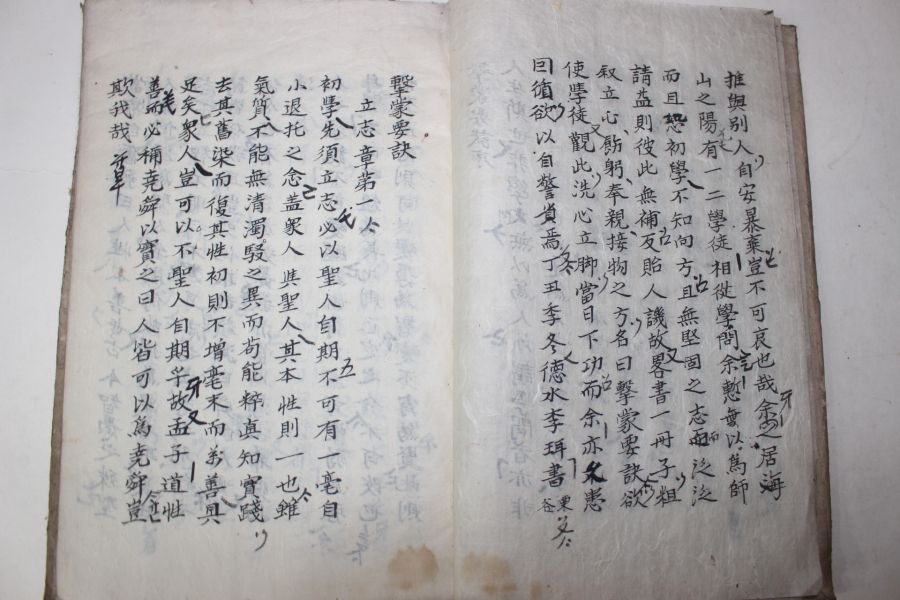 推與別人自安暴棄豈不可哀也哉余定居海
山之陽有一二學徒相從學問余慙無以爲師
而且恐初學不知向方且無堅固之志而泛泛
請益則彼此無補反貽人譏故畧書一冊子粗
叙立心飭躬奉親接物之方名曰擊蒙要訣欲
使學徒觀此洗心立脚當日下功而余亦久患
因循欲以自警焉丁丑季冬德水李珥書栗谷
擊蒙要訣
立志章第一
初學先須立志必以聖人自期不可有一毫自
小退托之念盖衆人與聖人其本性則一也雖
氣質不能無清濁駁之異而苟能粹真知實踐
去其舊染而復其性初則不增毫末而萬善具
足矣衆人豈可以不聖人自期乎故孟子道性
善而必稱堯舜以實之曰人皆可以爲堯舜豈
欺我哉